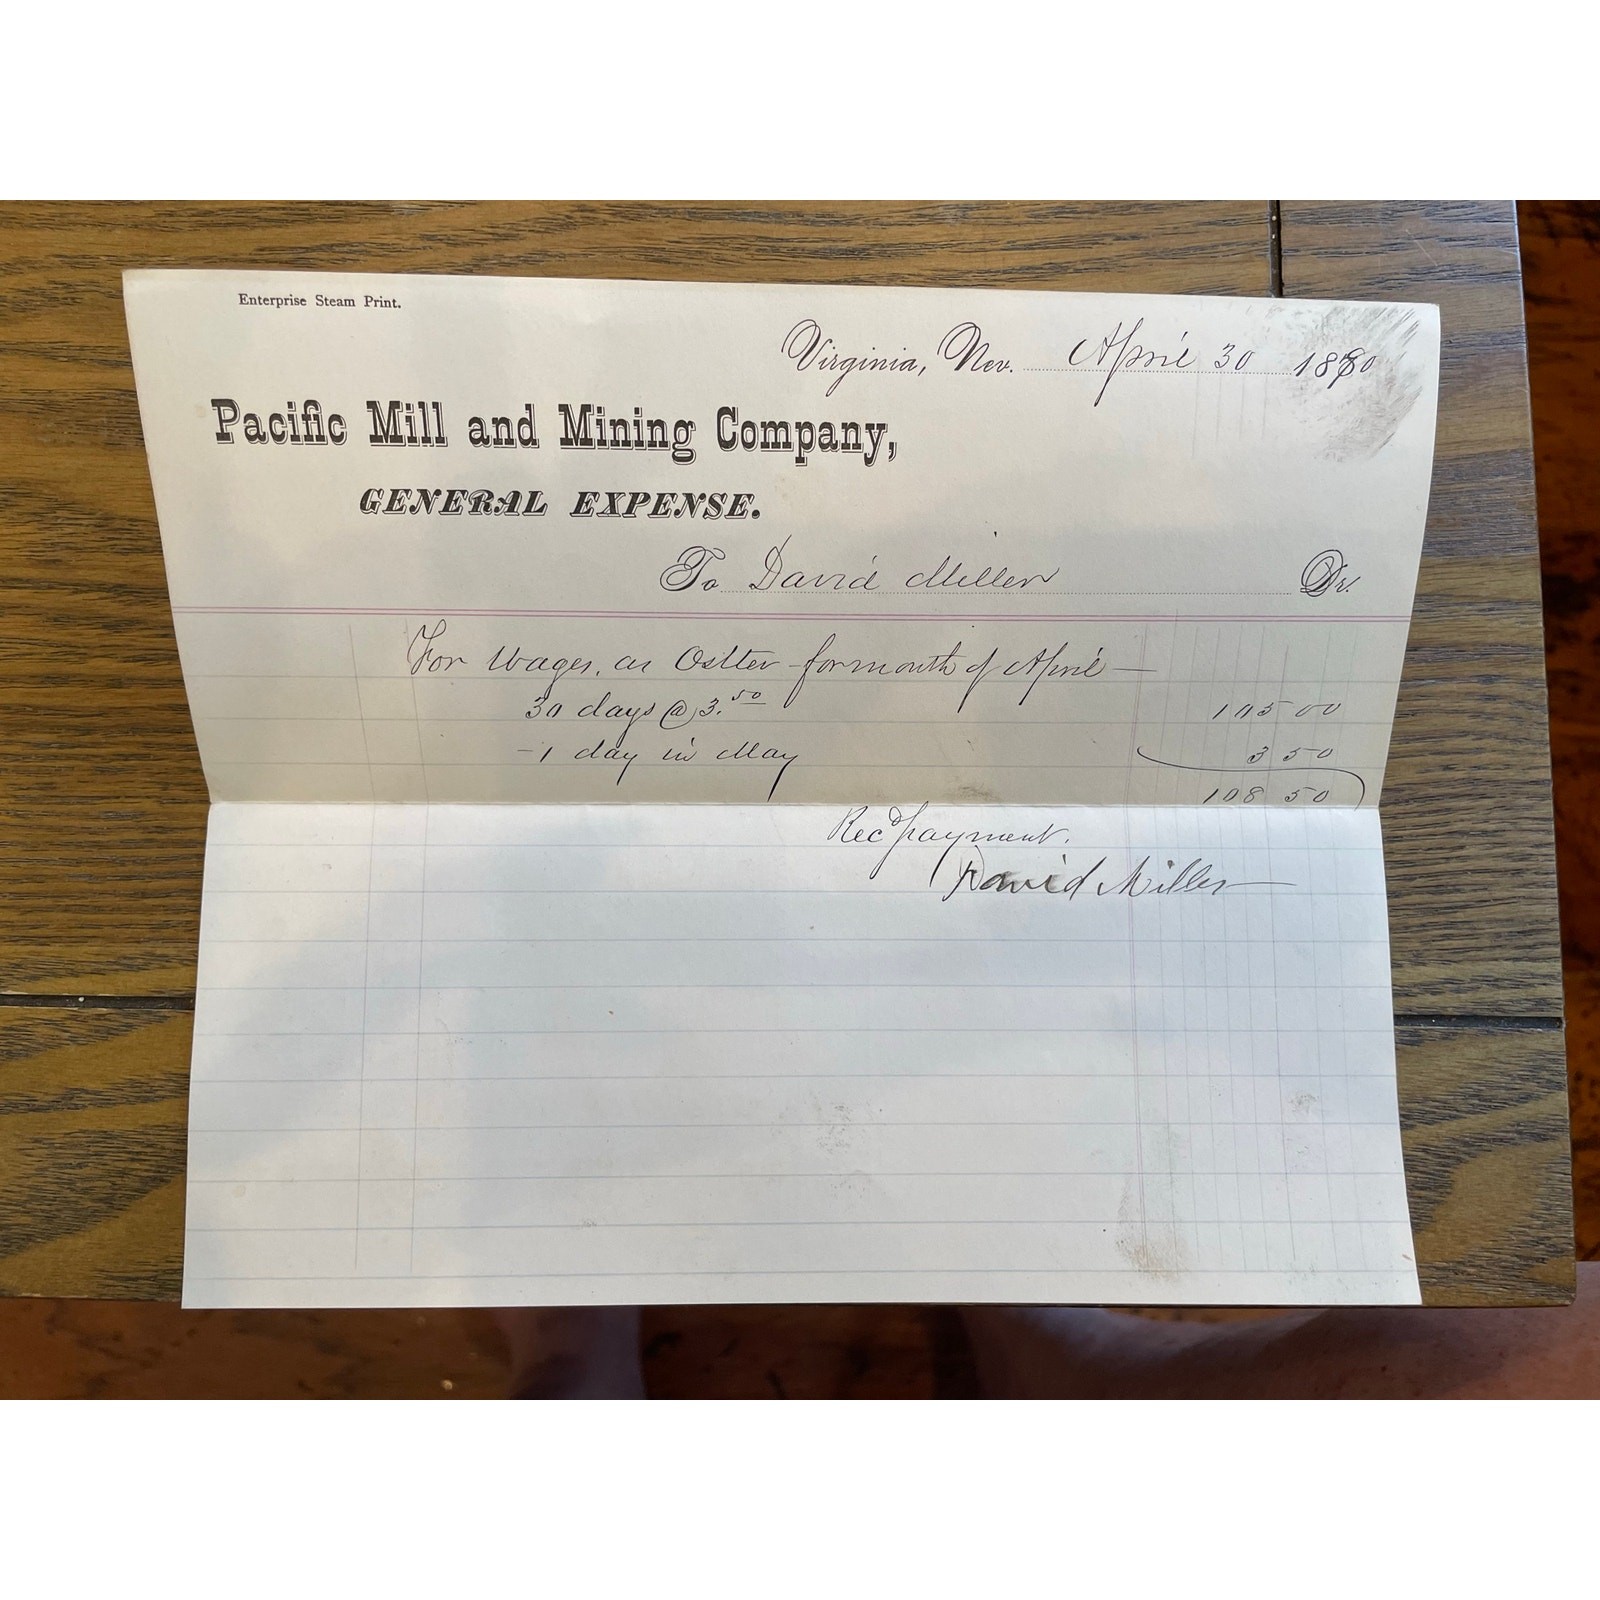 Enterprise Steam Print.
Virginia, Nev. April 30 1880
Pacific Mill and Mining Company,
GENERAL EXPENSE.
To David Miller Dr.
For Wages, as Ostler for month of April —
30 days @ 3.50 105 00
- 1 day in May 3 50
108 50
Recd payment.
David Miller